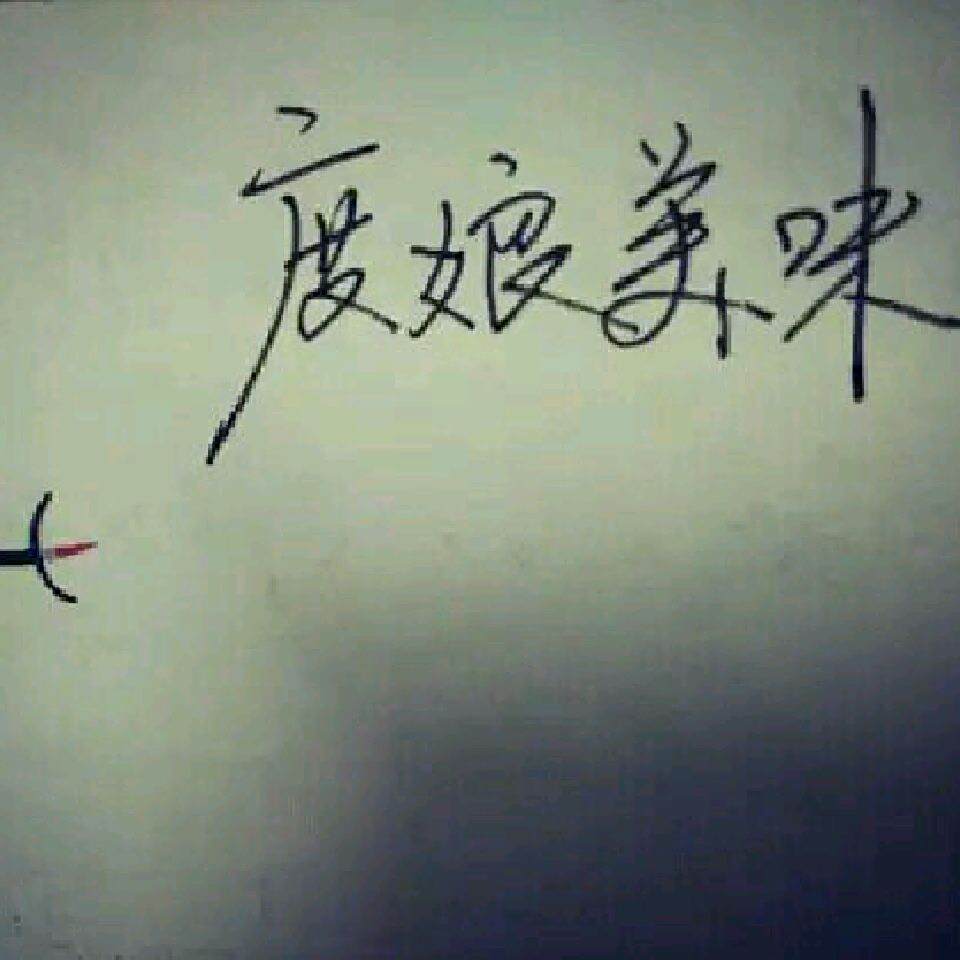 度娘美味